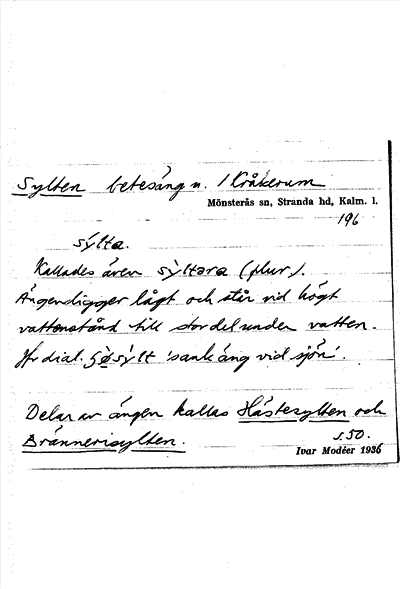 Sylten betesäng n. / Kråkerum
Mönsterås sn, Stranda hd, Kalm. l.
196
sýlta.
Kallades även sỳltara (plur.).
Ängen ligger lågt och står vid högt
vattenstånd till stor del under vatten.
Jfr dial. sjøsylt 'sank äng vid sjön'.
Delar av ängen kallas Hästesylten och
Brännerisylten.
s. 50.
Ivar Modéer 1936